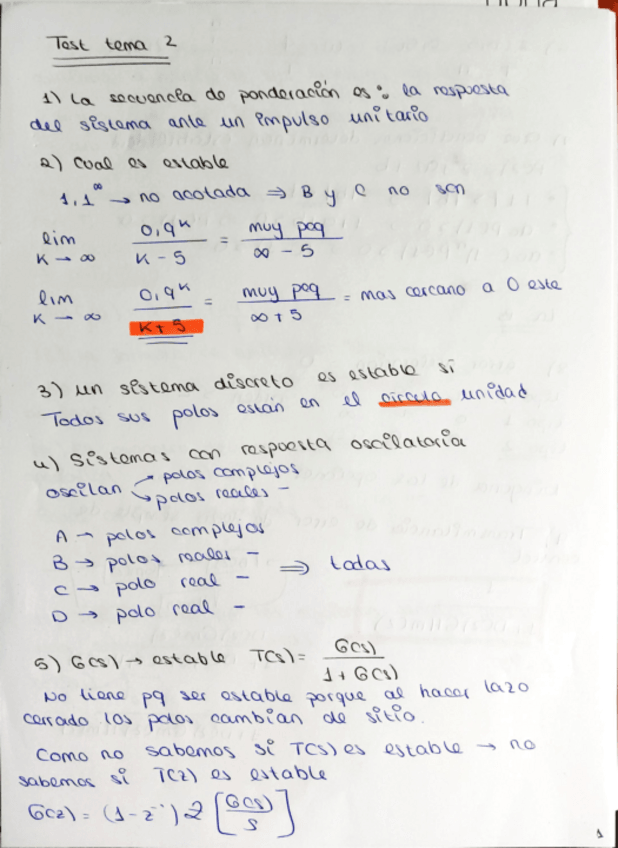 Test tema 2
1) La secuencia de ponderación es: la respuesta
del sistema ante un impulso unitario
2) Cual es estable
1,1^∞ → no acotada ⇒ B y C no son
lim K→∞ 0,9^K / K-5 = muy peq / ∞-5
lim K→∞ 0,9^K / K+5 = muy peq / ∞+5 = mas cercano a 0 este
3) un sistema discreto es estable si
Todos sus polos están en el circulo unidad
4) Sistemas con respuesta oscilatoria
oscilan → polos complejos
→ polos reales -
A → polos complejos
B → polos reales -
⇒ todas
C → polo real -
D → polo real -
5) G(s) → estable T(s) = G(s) / 1+G(s)
No tiene pq ser estable porque al hacer lazo
cerrado los polos cambian de sitio.
Como no sabemos si T(s) es estable → no
sabemos si T(z) es estable
G(z) = (1-z^-1) Z [G(s) / s]
1